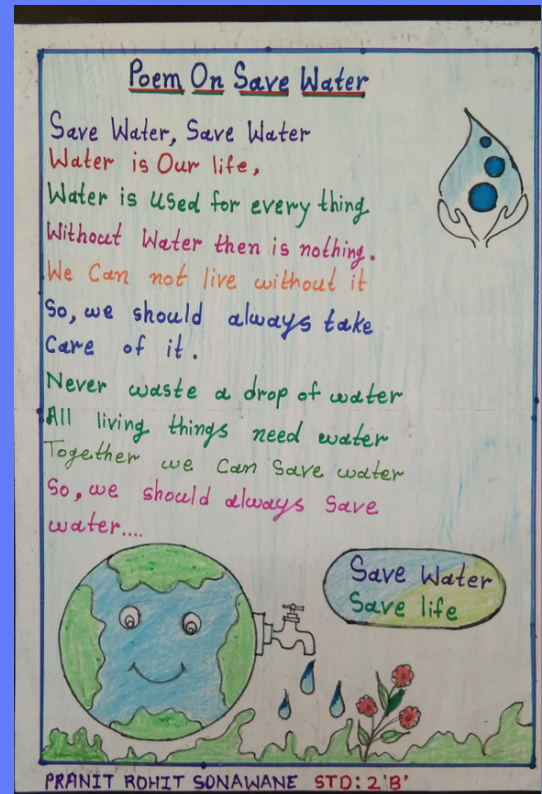 Poem On Save Water
Save Water, Save Water
Water is Our life,
Water is used for every thing
Without Water then is nothing.
We Can not live without it
So, we should always take
Care of it.
Never waste a drop of water
All living things need water
Together we Can Save water
So, we should always Save
water....
Save Water
Save life
PRANIT ROHIT SONAWANE STD: 2 'B'